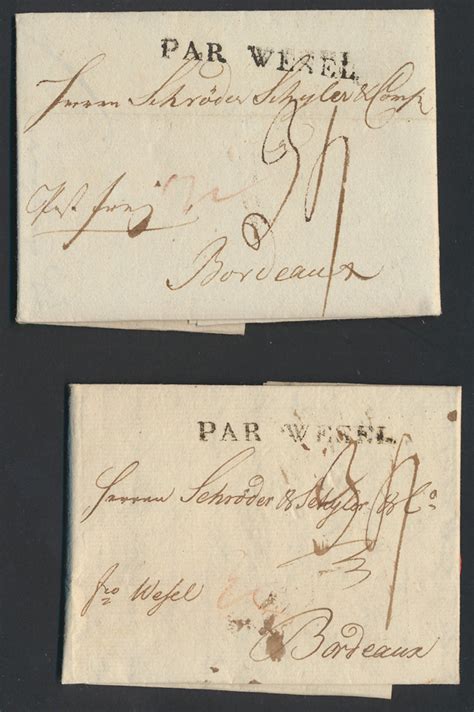 PAR WESEL
Herrn Schröder Schyler & Comp
34
Post frey
Bordeaux
PAR WESEL
Herren Schröder & Schyler & Co.
34
fro Wesel
Bordeaux